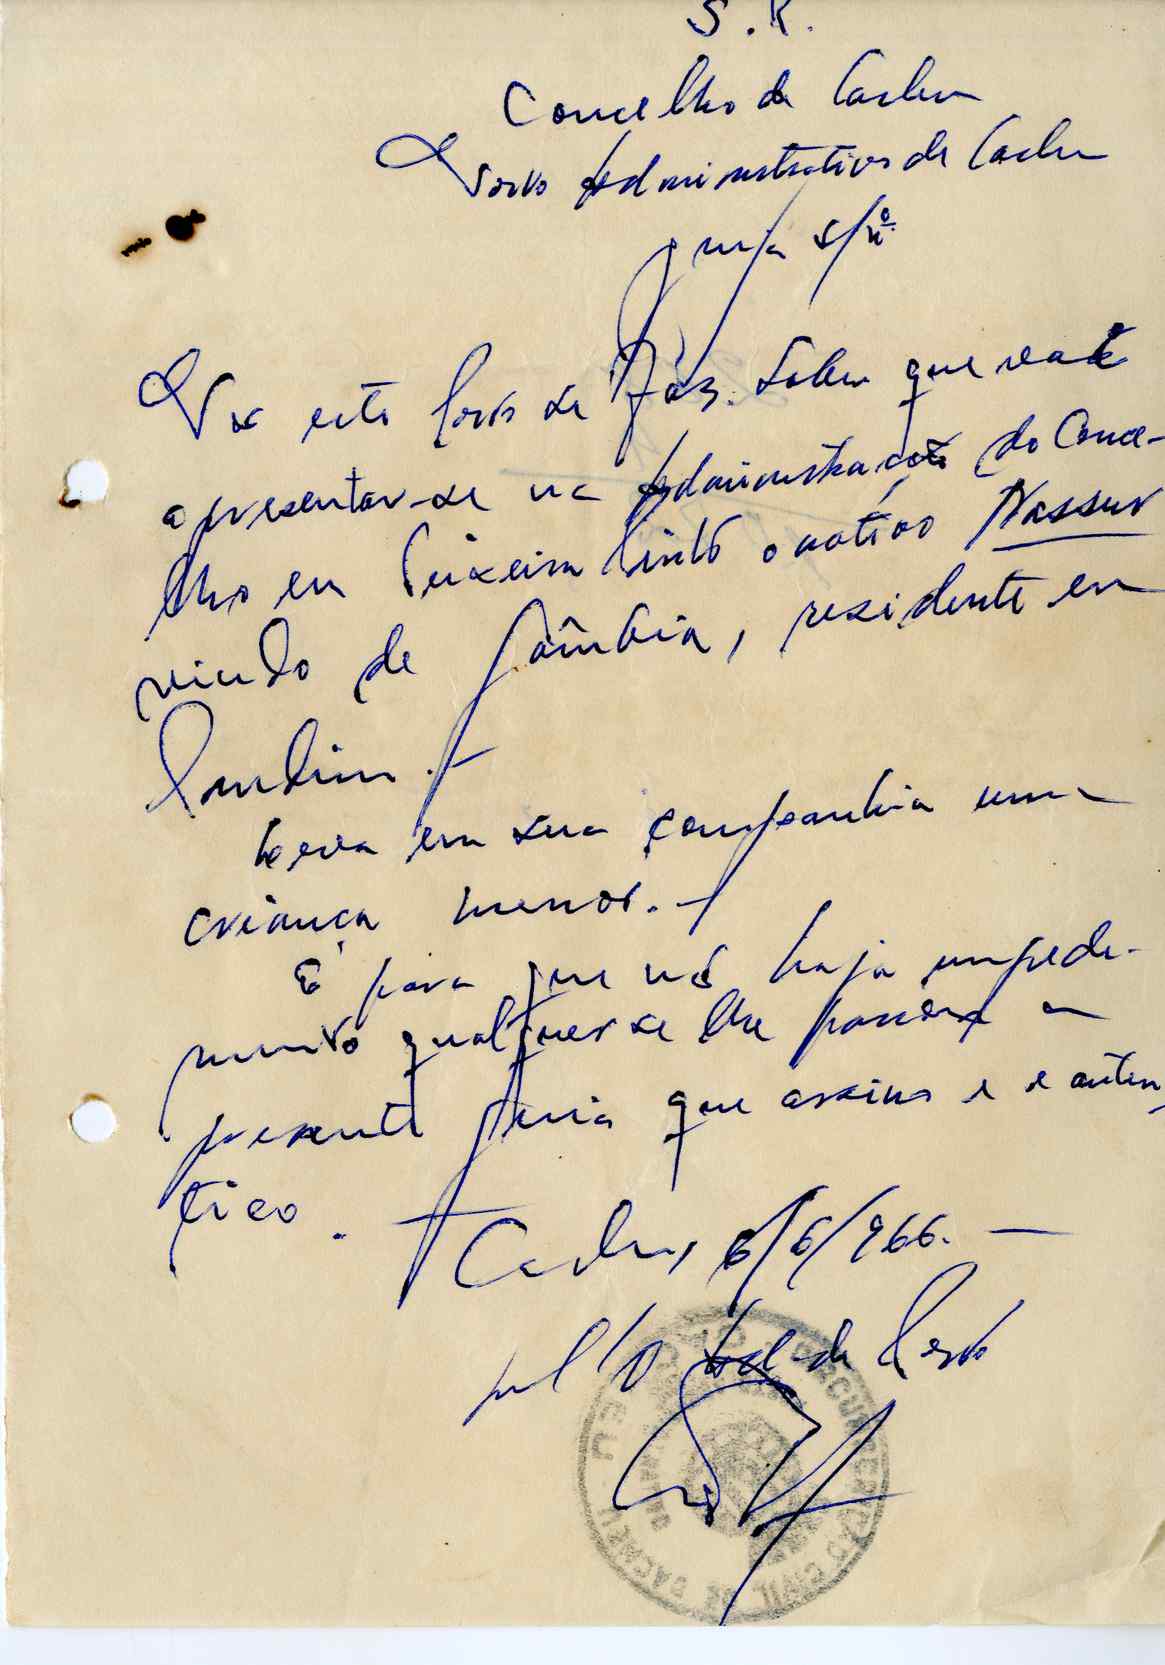 S. R.
Concelho de Cacheu
Posto Administrativo de Cacheu
Guia s/nº
Por este Posto se faz saber que vai
apresentar-se na Administração do Conce-
lho em Teixeira Pinto o nativo Nassur
vindo de Gâmbia, residente em
Pandim.
Leva em sua companhia uma
criança menor.
E para que nó haja impede-
mento qualquer se lhe passou a
presente guia que assino e autén
tico.
Cacheu, 6/6/966.
pel' O Ad. de Posto
CIRCUNSCRIÇÃO CIVIL DE